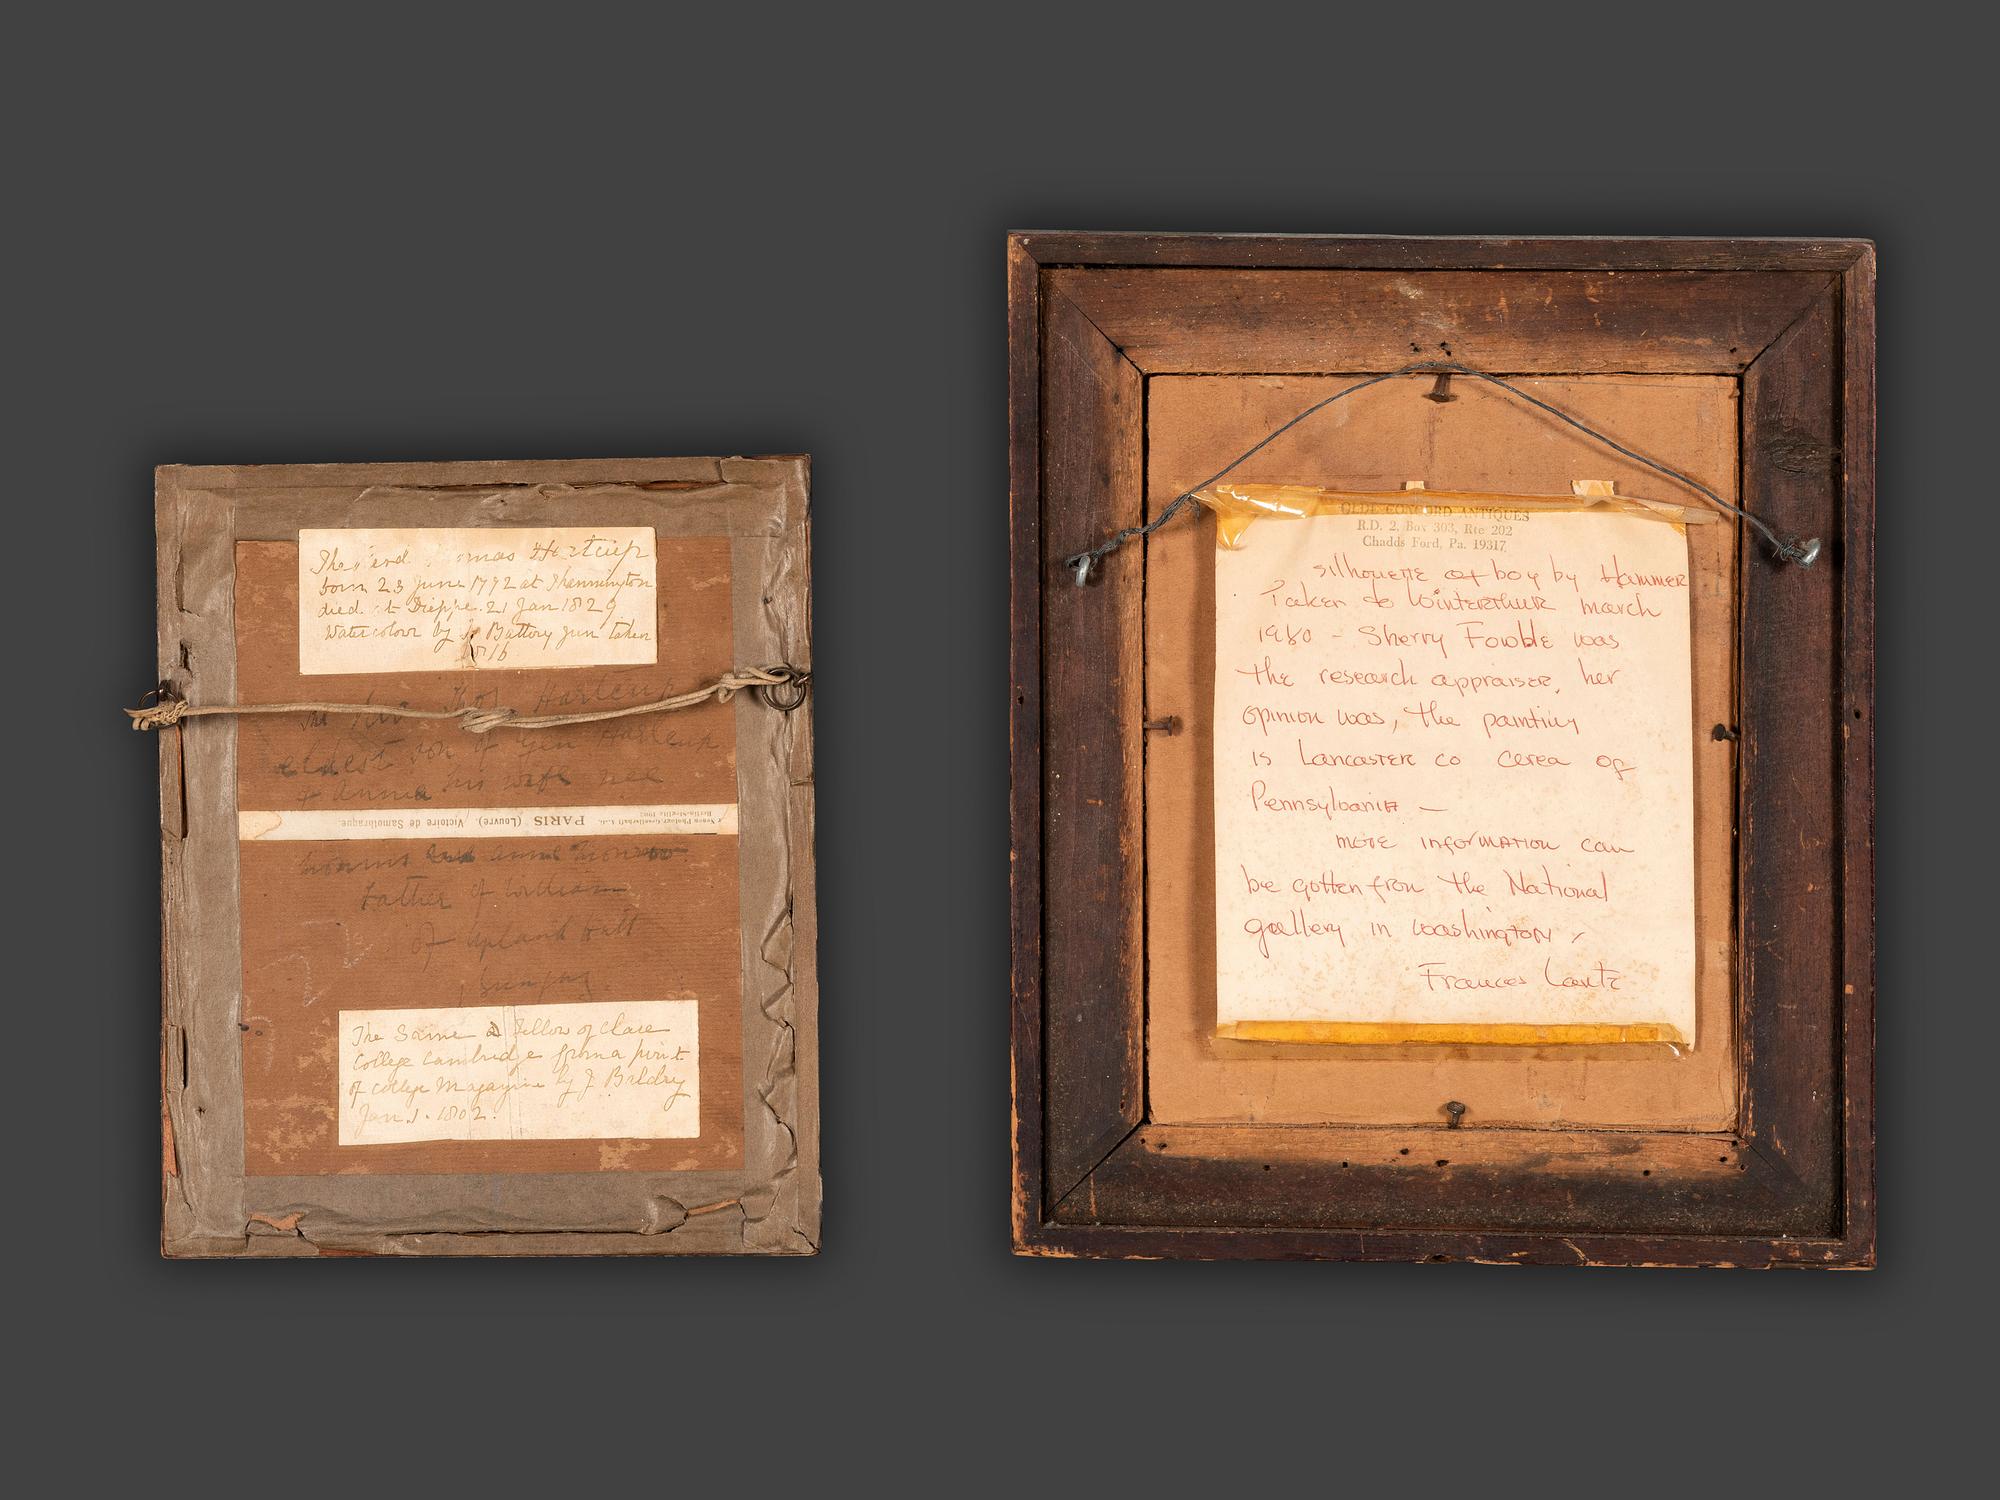 The Rev'd Thomas Hartcup
born 23 June 1792 at
died at Dieppe. 21 Jan 1829
Watercolour by J. Battory Jun taken
1816
The Rev Thos Hartcup
eldest son of Gen Hartcup
& Annia his wife nee
Neuen Photogr. Gesellschaft
Berlin-Steglitz 1902
PARIS (Louvre). Victoire de Samothraque.
and Anne
Father of William
of Upland Hall
Bungay.
The Same a Fellow of Clare
College Cambridge from a print
of College Magazine by J. Baldry
Jan. 1. 1802.
OLDE CONCORD ANTIQUES
R.D. 2, Box 303, Rte 202
Chadds Ford, Pa. 19317
silhouette of boy by Hammer
Taken to Winterthur march
1980 - Sherry Fowble was
the research appraiser, her
opinion was, the painting
is Lancaster co cerea of
Pennsylvania —
more information can
be gotten from the National
gallery in washington,
Frances Lantz